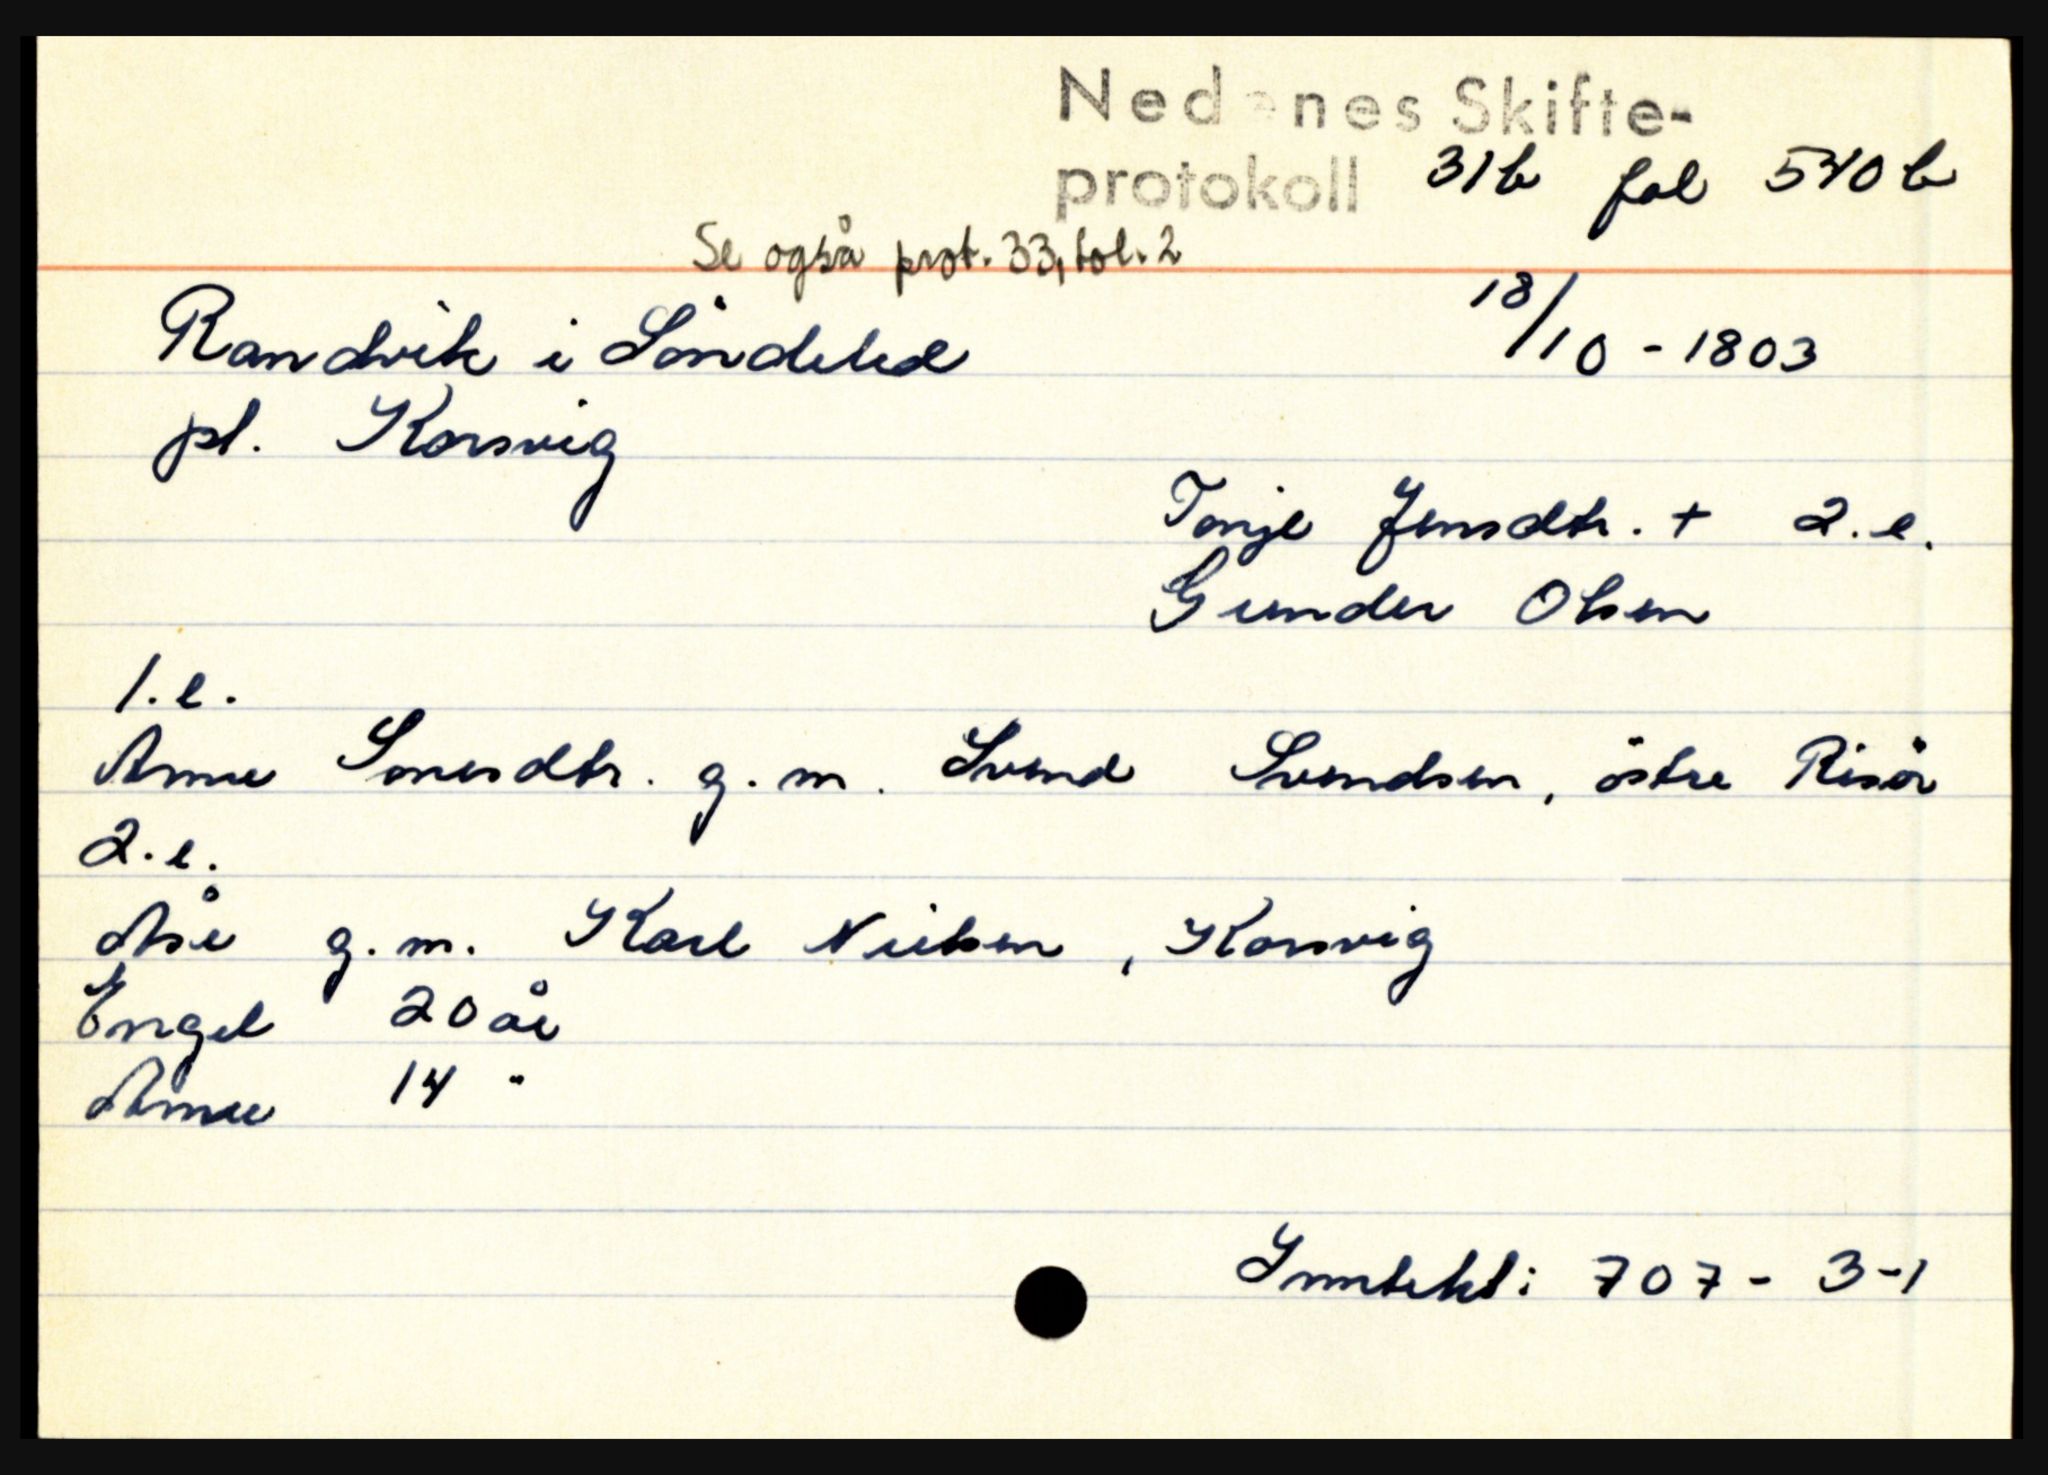 Nedenes Skifte-
protokoll 31b fol 540b
Se også prot. 33, fol. 2
Randvik i Söndeled 18/10-1803
pl. Korsvig
Tonje Jensdtr. + 2.e.
Gunder Olsen
1.e.
Anne Sonesdtr. g.m. Svend Svendsen, östre Risör
2.e.
Åse g.m. Karl Nielsen, Korsvig
Engel 20 år
Anne 14 "
Inntekt: 707-3-1